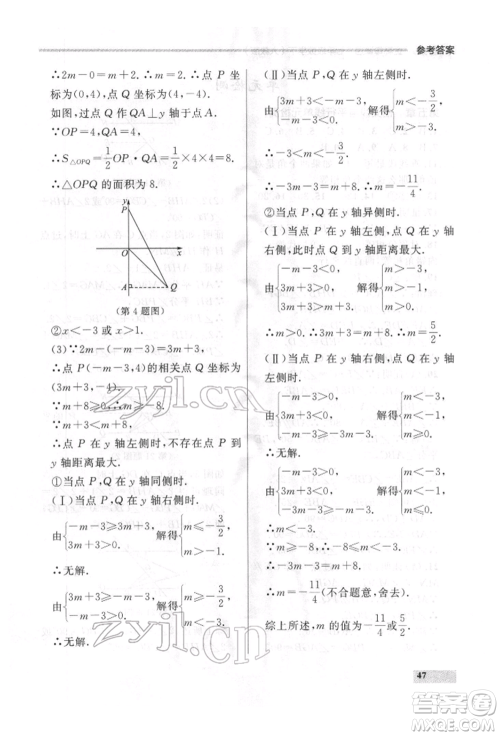 参考答案
∴2m-0=m+2. ∴m=2. ∴点 P 坐标
为(0,4),点 Q 坐标为(4,-4).
如图,过点 Q 作 QA⊥y 轴于点 A.
∵OP=4,QA=4,
∴S△OPQ=1/2 OP·QA=1/2×4×4=8.
∴△OPQ 的面积为 8.
y
P
O
x
A
Q
(第 4 题图)
②x<-3 或 x>1.
(3)∵2m-(-m-3)=3m+3,
∴点 P(-m-3,4)的相关点 Q 坐标为
(3m+3,-4).
∵m+8≥0,∴m≥-8.
∵m+2<3,∴m<1.
∴点 P 在 y 轴左侧时,不存在点 P 到
y 轴距离最大.
①当点 P,Q 在 y 轴同侧时.
(Ⅰ)当点 P,Q 在 y 轴右侧时.
由{-m-3≥3m+3, 3m+3>0. 解得{m≤-3/2, m>-1.
∴无解.
由{-m-3<3m+3, -m-3>0. 解得{m>-3/2, m<-3.
∴无解.
(Ⅱ)当点 P,Q 在 y 轴左侧时.
由{3m+3<-m-3, -m-3<0. 解得{m<-3/2, m>-3.
∴-3<m<-3/2. ∴m=-11/4.
②当点 P,Q 在 y 轴异侧时.
(Ⅰ)当点 P 在 y 轴左侧,点 Q 在 y 轴
右侧,此时点 Q 到 y 轴距离最大.
由{-m-3<0, 3m+3>0, 3m+3≥m+3. 解得{m>-3, m>-1, m≥0.
∴m>0. ∴3m+3=m+8. ∴m=5/2.
(Ⅱ)当点 P 在 y 轴右侧,点 Q 在 y 轴
左侧时.
由{-m-3>0, 3m+3<0, -m-3≥-3m-3. 解得{m<-3, m<-1, m≥0.
∴无解.
由{-m-3>0, 3m+3<0, -3m-3>-m-3. 解得{m<-3, m<-1, m<0.
∴m<-3.
∵m≥-8,∴-8≤m<-3.
∴-3m-3=m+8.
∴m=-11/4(不合题意,舍去).
综上所述,m 的值为-11/4或5/2.
47
zyjl.cn
zyjl.cn
答案圈
MXQE.COM